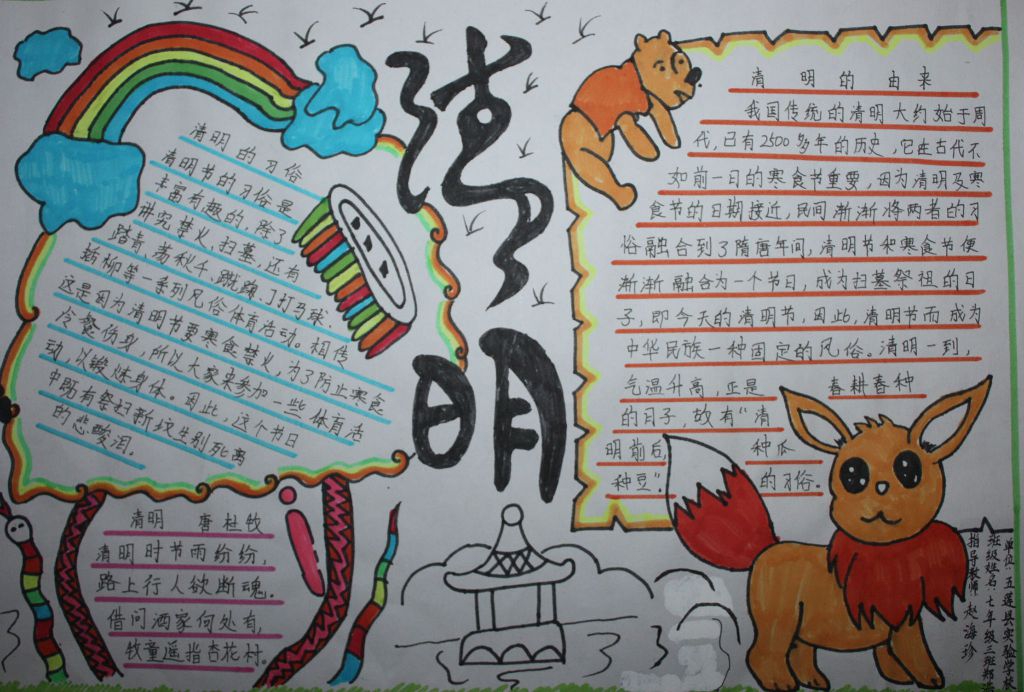 清明
清明的习俗
清明节的习俗是
丰富有趣的,除了
讲究禁火、扫墓,还有
踏青、荡秋千、蹴鞠、打马球、
插柳等一系列风俗体育活动。相传
这是因为清明节要寒食禁火,为了防止寒食
冷餐伤身,所以大家来参加一些体育活
动,以锻炼身体。因此,这个节日
中既有祭扫新坟生别死离
的悲酸泪。
清明 唐 杜牧
清明时节雨纷纷,
路上行人欲断魂。
借问酒家何处有,
牧童遥指杏花村。
清明的由来
我国传统的清明大约始于周
代,已有2500多年的历史,它在古代不
如前一日的寒食节重要,因为清明及寒
食节的日期接近,民间渐渐将两者的习
俗融合到了隋唐年间,清明节和寒食节便
渐渐融合为一个节日,成为扫墓祭祖的日
子,即今天的清明节,因此,清明节而成为
中华民族一种固定的风俗。清明一到,
气温升高,正是 春耕春种
的日子,故有“清
明前后, 种瓜
种豆”. 的习俗。
单位:五莲县实验学校
班级姓名:七年级三班郑
指导教师 赵海珍